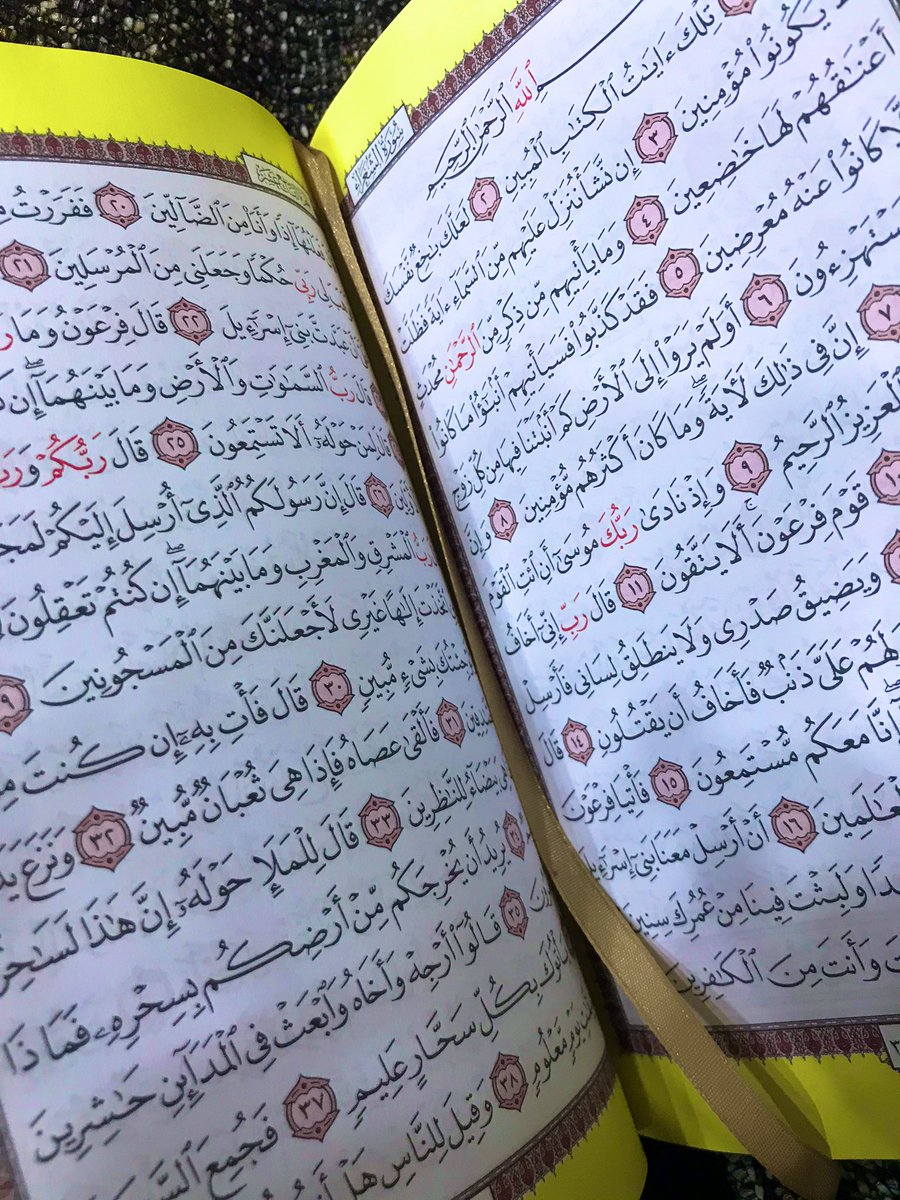 سُورَةُ الشُّعَرَاءِ
ٱللَّهِ ٱلرَّحْمَٰنِ ٱلرَّحِيمِ
تِلْكَ ءَايَٰتُ ٱلْكِتَٰبِ ٱلْمُبِينِ ٢ لَعَلَّكَ بَٰخِعٌ نَّفْسَكَ
يَكُونُوا۟ مُؤْمِنِينَ ٣ إِن نَّشَأْ نُنَزِّلْ عَلَيْهِم مِّنَ ٱلسَّمَآءِ ءَايَةً فَظَلَّتْ
أَعْنَٰقُهُمْ لَهَا خَٰضِعِينَ ٤ وَمَا يَأْتِيهِم مِّن ذِكْرٍ مِّنَ ٱلرَّحْمَٰنِ مُحْدَثٍ
كَانُوا۟ عَنْهُ مُعْرِضِينَ ٥ فَقَدْ كَذَّبُوا۟ فَسَيَأْتِيهِمْ أَنۢبَٰٓؤُا۟ مَا كَانُوا۟
يَسْتَهْزِءُونَ ٦ أَوَلَمْ يَرَوْا۟ إِلَى ٱلْأَرْضِ كَمْ أَنۢبَتْنَا فِيهَا مِن كُلِّ زَوْجٍ
٧ إِنَّ فِى ذَٰلِكَ لَءَايَةً ۖ وَمَا كَانَ أَكْثَرُهُم مُّؤْمِنِينَ ٨ وَإِنَّ
ٱلْعَزِيزُ ٱلرَّحِيمُ ٩ وَإِذْ نَادَىٰ رَبُّكَ مُوسَىٰٓ أَنِ ٱئْتِ ٱلْقَوْمَ
١٠ قَوْمَ فِرْعَوْنَ ۚ أَلَا يَتَّقُونَ ١١ قَالَ رَبِّ إِنِّىٓ أَخَافُ
وَيَضِيقُ صَدْرِى وَلَا يَنطَلِقُ لِسَانِى فَأَرْسِلْ
وَلَهُمْ عَلَىَّ ذَنۢبٌ فَأَخَافُ أَن يَقْتُلُونِ ١٤ قَالَ
إِنَّا مَعَكُم مُّسْتَمِعُونَ ١٥ فَأْتِيَا فِرْعَوْنَ
ٱلْعَٰلَمِينَ ١٦ أَنْ أَرْسِلْ مَعَنَا بَنِىٓ إِسْرَٰٓءِيلَ
وَلَبِثْتَ فِينَا مِنْ عُمُرِكَ سِنِينَ
وَأَنتَ مِنَ ٱلْكَٰفِرِينَ
فَعَلْتُهَآ إِذًا وَأَنَا۠ مِنَ ٱلضَّآلِّينَ ٢٠ فَفَرَرْتُ
لِى رَبِّى حُكْمًا وَجَعَلَنِى مِنَ ٱلْمُرْسَلِينَ ٢١
أَنْ عَبَّدتَّ بَنِىٓ إِسْرَٰٓءِيلَ ٢٢ قَالَ فِرْعَوْنُ وَمَا
قَالَ رَبُّ ٱلسَّمَٰوَٰتِ وَٱلْأَرْضِ وَمَا بَيْنَهُمَآ ۖ إِن
قَالَ لِمَنْ حَوْلَهُۥٓ أَلَا تَسْتَمِعُونَ ٢٥ قَالَ رَبُّكُمْ
٢٦ قَالَ إِنَّ رَسُولَكُمُ ٱلَّذِىٓ أُرْسِلَ إِلَيْكُمْ
رَبُّ ٱلْمَشْرِقِ وَٱلْمَغْرِبِ وَمَا بَيْنَهُمَآ ۖ إِن كُنتُمْ تَعْقِلُونَ
ٱتَّخَذْتَ إِلَٰهًا غَيْرِى لَأَجْعَلَنَّكَ مِنَ ٱلْمَسْجُونِينَ
جِئْتُكَ بِشَىْءٍ مُّبِينٍ ٣٠ قَالَ فَأْتِ بِهِۦٓ إِن كُنتَ
٣١ فَأَلْقَىٰ عَصَاهُ فَإِذَا هِىَ ثُعْبَانٌ مُّبِينٌ ٣٢ وَنَزَعَ
بَيْضَآءُ لِلنَّٰظِرِينَ ٣٣ قَالَ لِلْمَلَإِ حَوْلَهُۥٓ إِنَّ هَٰذَا
٣٤ يُرِيدُ أَن يُخْرِجَكُم مِّنْ أَرْضِكُم بِسِحْرِهِۦ فَمَاذَا
٣٥ قَالُوٓا۟ أَرْجِهْ وَأَخَاهُ وَٱبْعَثْ فِى ٱلْمَدَآئِنِ حَٰشِرِينَ
يَأْتُوكَ بِكُلِّ سَحَّارٍ عَلِيمٍ ٣٧ فَجُمِعَ
يَوْمٍ مَّعْلُومٍ ٣٨ وَقِيلَ لِلنَّاسِ هَلْ